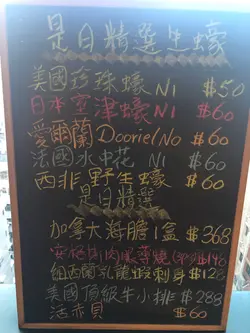 是日精選生蠔
美國珍珠蠔 N1 $50
日本宮津蠔 N1 $60
愛爾蘭 Dooriel No $60
法國水中花 N1 $60
西非野生蠔 $60
是日精選
加拿大海膽1盒 $368
安格斯肉眼薄燒 $148
紐西蘭乳龍蝦刺身 $128
美國頂級牛小排 $288
活赤貝 $60